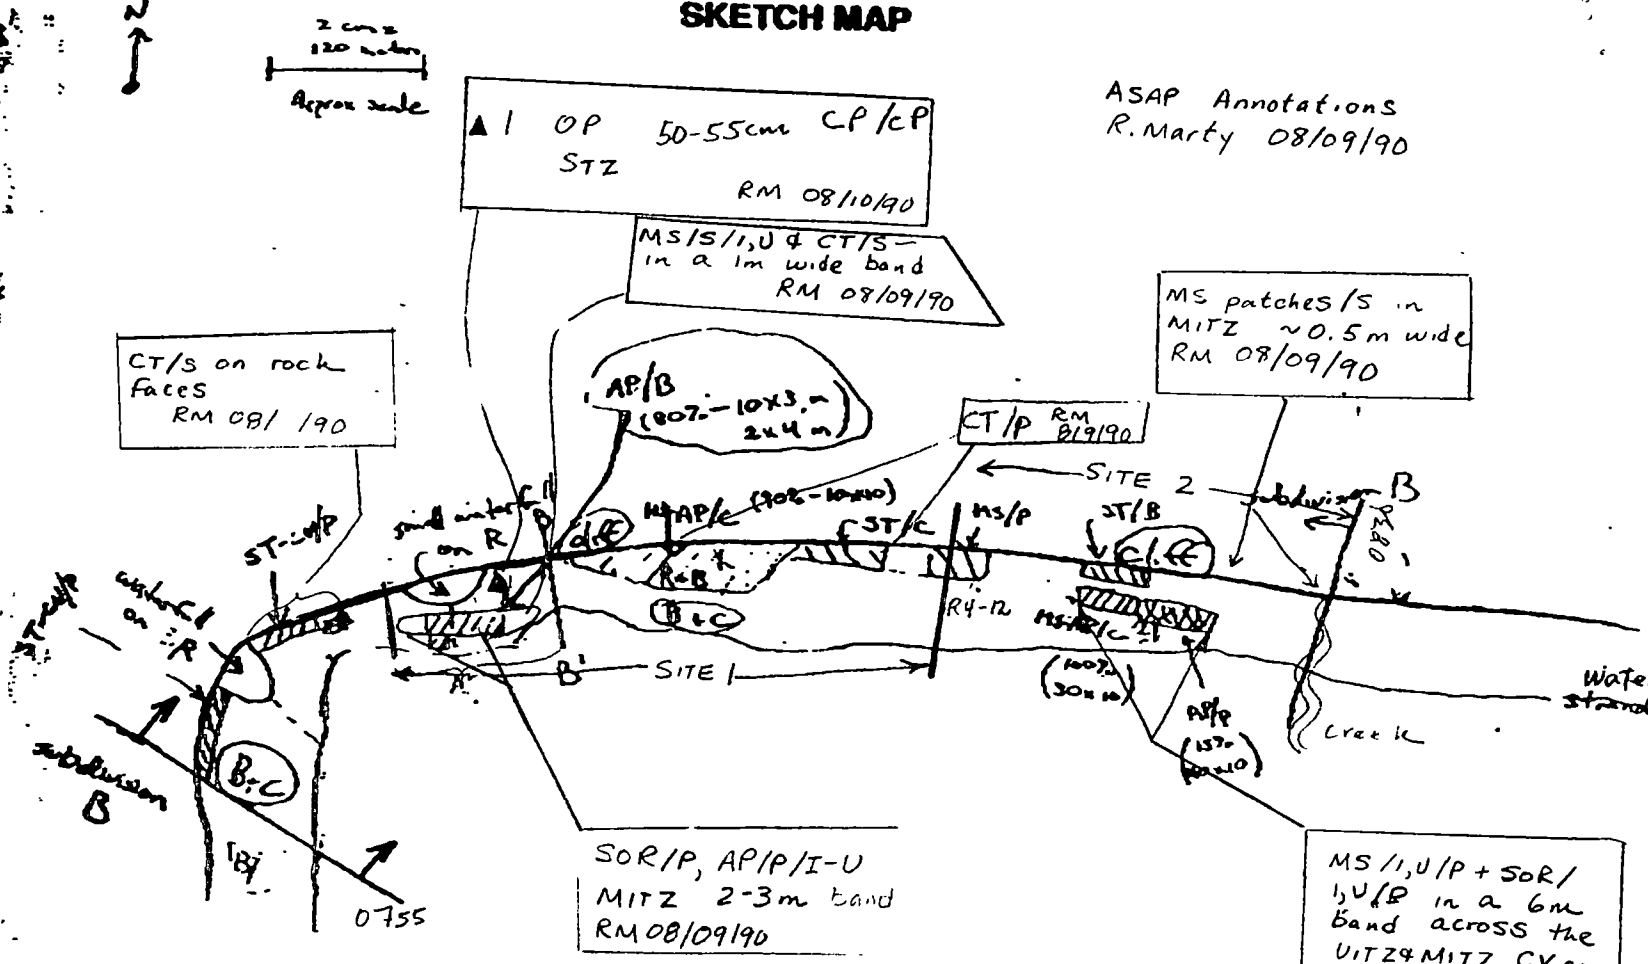 SKETCH MAP
N
2 cm =
120 meters
Approx scale
ASAP Annotations
R. Marty 08/09/90
▲ 1 OP 50-55cm CP/CP
STZ
RM 08/10/90
MS/S/I,U & CT/S -
in a 1m wide band
RM 08/09/90
MS patches/S in
MITZ ~0.5m wide
RM 08/09/90
CT/S on rock
faces
RM 08/ /90
AP/B
(80% - 10x3 m
2x4 m)
CT/P RM
8/9/90
SITE 2
subdivision B
small waterfall
on R
AP/C (90% - 10x10)
ST/C
MS/P
ST/B
cliff
cliff
waterfall
on R
R+B
B+C
R4-12
(100%
30x10)
AP/P
(15%
B'
SITE 1
Creek
subdivision
B
B+C
0755
SOR/P, AP/P/I-U
MITZ 2-3m band
RM 08/09/90
MS/I,U/P + SOR/
I,U/P in a 6m
band across the
UITZ & MITZ